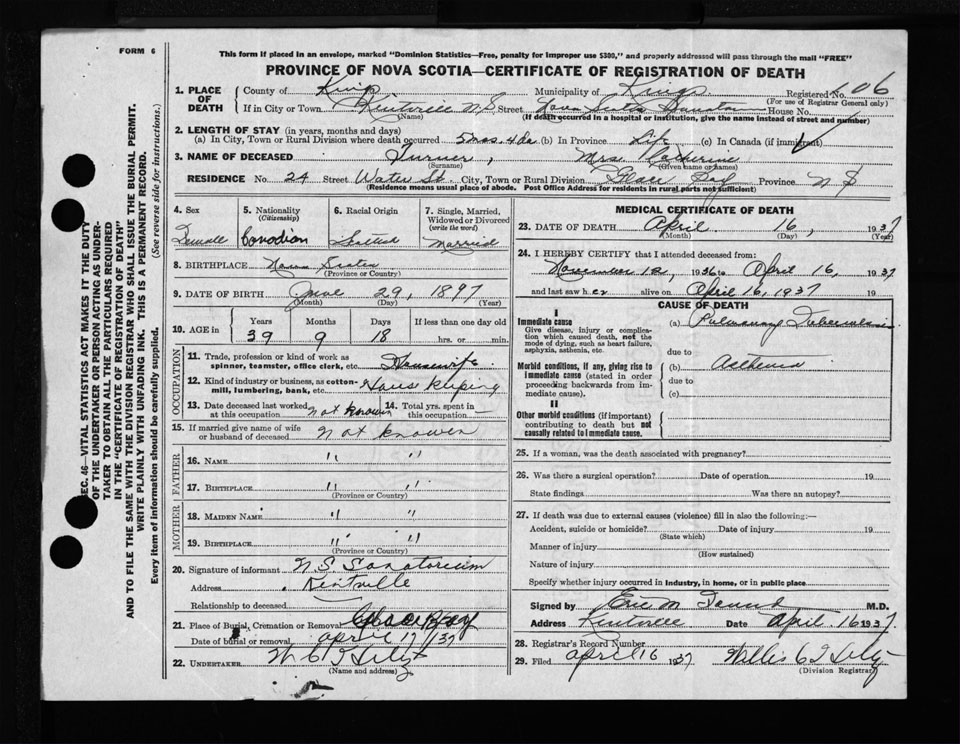 FORM 6
This form if placed in an envelope, marked "Dominion Statistics—Free, penalty for improper use $300," and properly addressed will pass through the mail "FREE"
PROVINCE OF NOVA SCOTIA—CERTIFICATE OF REGISTRATION OF DEATH
1. PLACE OF DEATH County of Kings Municipality of Kings Registered No. 606
(For use of Registrar General only)
If in City or Town Kentville N.S. Street Nova Scotia House No.
(Name) (If death occurred in a hospital or institution, give the name instead of street and number)
2. LENGTH OF STAY (in years, months and days)
(a) In City, Town or Rural Division where death occurred 5 mos. 4 da (b) In Province Life (c) In Canada (if immigrant)
3. NAME OF DECEASED Turner, Mrs. Katherine
(Surname) (Given name or names)
RESIDENCE No. 24 Street Water St. City, Town or Rural Division Glace Bay Province N S
(Residence means usual place of abode. Post Office Address for residents in rural parts not sufficient)
4. Sex 5. Nationality (Citizenship) 6. Racial Origin 7. Single, Married, Widowed or Divorced (write the word)
Female Canadian Scottish Married
8. BIRTHPLACE Nova Scotia
(Province or Country)
9. DATE OF BIRTH June 29, 1897
(Month) (Day) (Year)
10. AGE in Years Months Days If less than one day old
39 9 18 hrs. or min.
OCCUPATION
11. Trade, profession or kind of work as spinner, teamster, office clerk, etc. Housewife
12. Kind of industry or business, as cotton-mill, lumbering, bank, etc. Hous keping
13. Date deceased last worked at this occupation not known 14. Total yrs. spent in this occupation —
15. If married give name of wife or husband of deceased not knowen
FATHER
16. NAME " "
17. BIRTHPLACE " "
(Province or Country)
MOTHER
18. MAIDEN NAME " "
19. BIRTHPLACE " "
(Province or Country)
20. Signature of informant N.S. Sanatorium
Address Kentville
Relationship to deceased
21. Place of Burial, Cremation or Removal Glace Bay
Date of burial or removal april 17 /37
22. UNDERTAKER
(Name and address)
MEDICAL CERTIFICATE OF DEATH
23. DATE OF DEATH April 16, 1937
(Month) (Day) (Year)
24. I HEREBY CERTIFY that I attended deceased from:
November 12, 1936 to April 16, 1937
and last saw her alive on April 16, 1937 19
CAUSE OF DEATH
I
Immediate cause
Give disease, injury or complication which caused death, not the mode of dying, such as heart failure, asphyxia, asthenia, etc.
(a) Pulmonary Tuberculosis
due to
Morbid conditions, if any, giving rise to immediate cause (stated in order proceeding backwards from immediate cause).
(b) Asthenia
due to
(c)
II
Other morbid conditions (if important) contributing to death but not causally related to immediate cause.
25. If a woman, was the death associated with pregnancy?
26. Was there a surgical operation? Date of operation 19
State findings Was there an autopsy?
27. If death was due to external causes (violence) fill in also the following:—
Accident, suicide or homicide? Date of injury 19
(State which)
Manner of injury
(How sustained)
Nature of injury
Specify whether injury occurred in industry, in home, or in public place
Signed by Eric M M.D.
Address Kentville Date April 16 1937
28. Registrar's Record Number
29. Filed april 16 1937 Willis
(Division Registrar)
SEC. 46—VITAL STATISTICS ACT MAKES IT THE DUTY
OF THE UNDERTAKER OR PERSON ACTING AS UNDER-
TAKER TO OBTAIN ALL THE PARTICULARS REQUIRED
IN THE "CERTIFICATE OF REGISTRATION OF DEATH"
AND TO FILE THE SAME WITH THE DIVISION REGISTRAR WHO SHALL ISSUE THE BURIAL PERMIT.
WRITE PLAINLY WITH UNFADING INK. THIS IS A PERMANENT RECORD.
Every item of information should be carefully supplied. (See reverse side for instructions.)